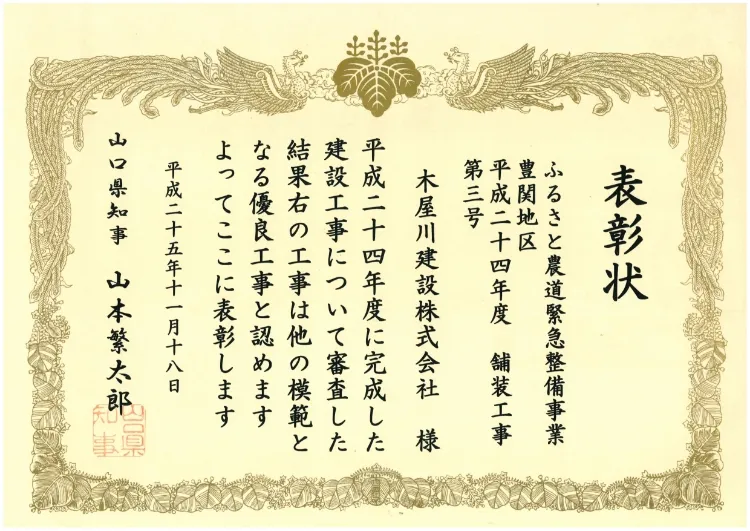 表彰状
ふるさと農道緊急整備事業
豊関地区
平成二十四年度　舗装工事
第三号
木屋川建設株式会社　様
平成二十四年度に完成した
建設工事について審査した
結果右の工事は他の模範と
なる優良工事と認めます
よってここに表彰します
平成二十五年十一月十八日
山口県知事　山本繁太郎
山口県
知事